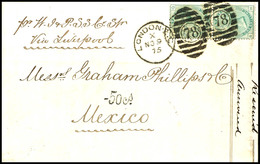 pr. W. I. & P. S. S. Co's Str
Via Liverpool
LONDON-E.C
X
NO 9
75
78
78
Messrs Graham Phillips & Co
-50cs
Mexico
Received
Answered